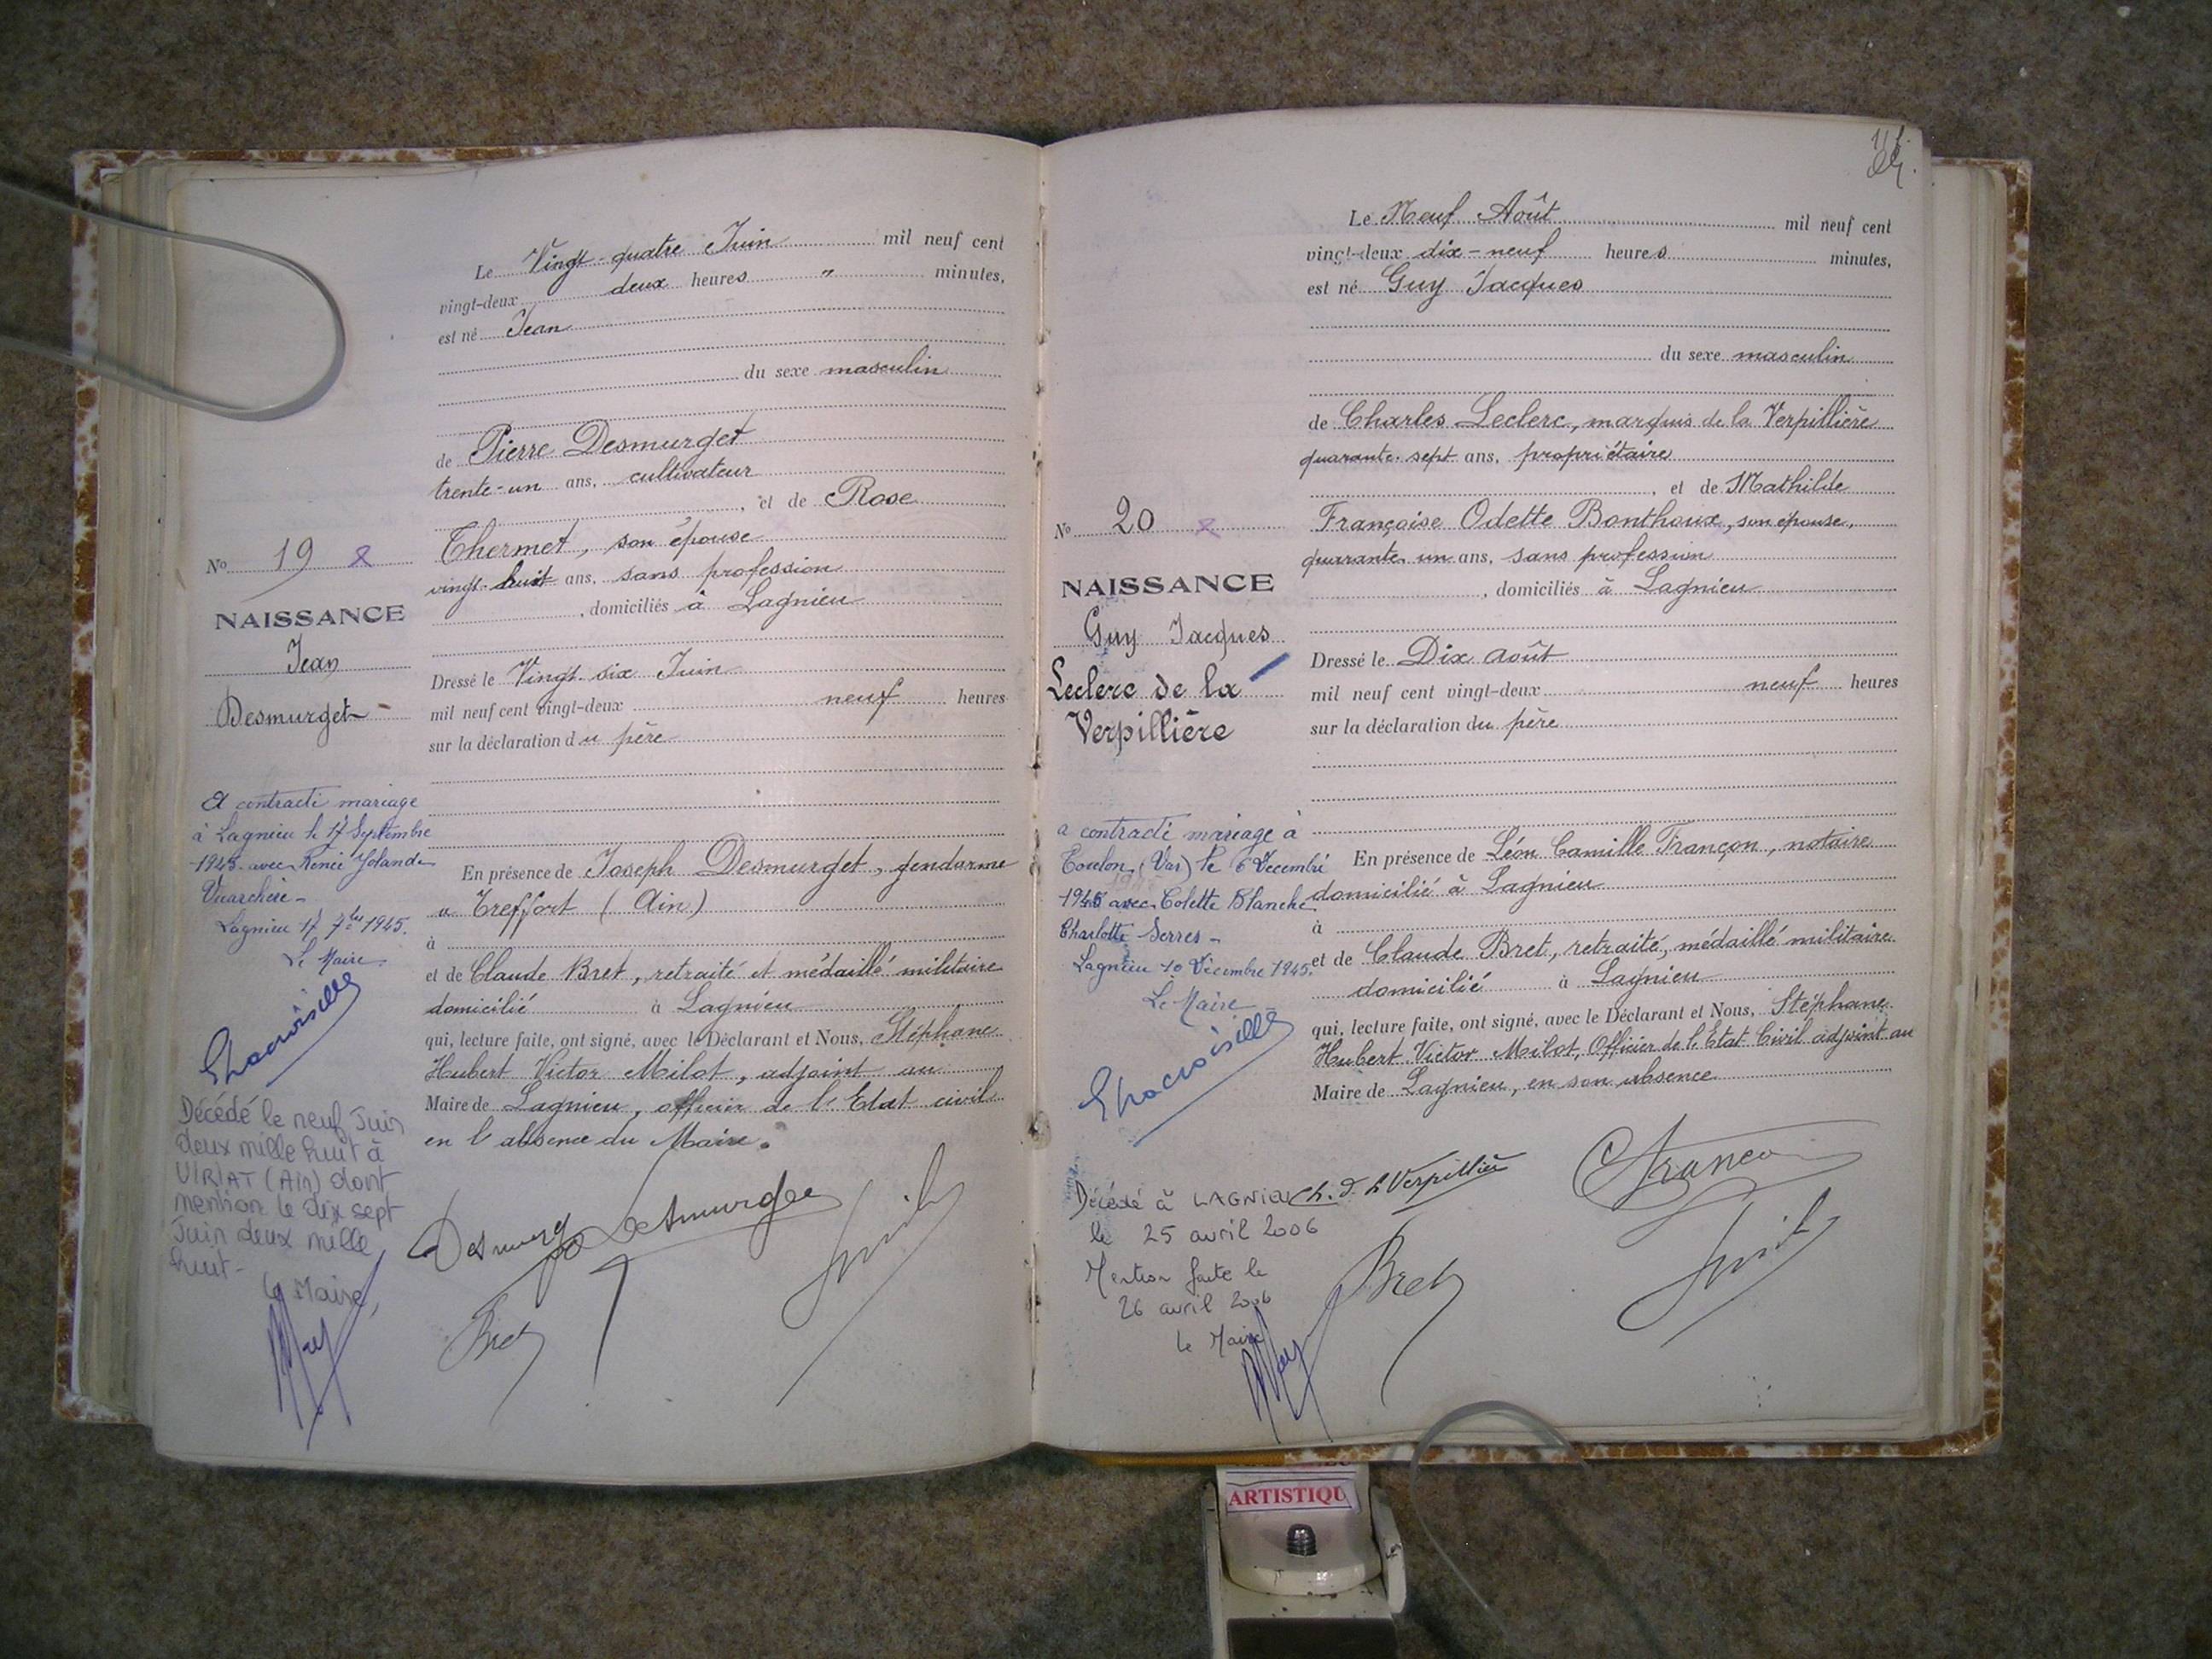 Le Vingt-quatre Juin mil neuf cent
vingt-deux deux heures " minutes,
est né Jean
du sexe masculin
de Pierre Desmurget
trente-un ans, cultivateur
, et de Rose
Thermet, son épouse
vingt-huit ans, sans profession
, domiciliés à Lagnieu
Dressé le Vingt-six Juin
mil neuf cent vingt-deux neuf heures
sur la déclaration du père
En présence de Joseph Desmurget, gendarme
à Treffort (Ain)
à
et de Claude Bret, retraité et médaillé militaire
domicilié à Lagnieu
qui, lecture faite, ont signé, avec le Déclarant et Nous, Stéphane
Hubert Victor Milot, adjoint au
Maire de Lagnieu, officier de l'Etat civil
en l'absence du Maire.
Bret
No 19
NAISSANCE
Jean
Desmurget
A contracté mariage
à Lagnieu le 17 Septembre
1945 avec Renée Yolande
Lagnieu 17 7bre 1945.
Le Maire
Décédé le neuf Juin
deux mille huit à
VIRIAT (Ain) dont
mention le dix sept
Juin deux mille
huit-
Le Maire,
Le Neuf Août mil neuf cent
vingt-deux dix-neuf heures minutes,
est né Guy Jacques
du sexe masculin
de Charles Leclerc, marquis de la Verpillière
quarante-sept ans, propriétaire
, et de Mathilde
Françoise Odette Bonthoux, son épouse,
quarante un ans, sans profession
, domiciliés à Lagnieu
Dressé le Dix août
mil neuf cent vingt-deux neuf heures
sur la déclaration du père
En présence de Léon Camille Françon, notaire
domicilié à Lagnieu
à
et de Claude Bret, retraité, médaillé militaire
domicilié à Lagnieu
qui, lecture faite, ont signé, avec le Déclarant et Nous, Stéphane
Hubert Victor Milot, Officier de l'Etat Civil adjoint au
Maire de Lagnieu, en son absence
Ch. d. la Verpillière
Bret
No 20
NAISSANCE
Guy Jacques
Leclerc de la
Verpillière
a contracté mariage à
Toulon (Var) le 6 Décembre
1945 avec Colette Blanche
Charlotte Serres -
Lagnieu 10 Décembre 1945.
Le Maire
Décédé à LAGNIEU
le 25 avril 2006
Mention faite le
26 avril 2006
Le Maire
ARTISTIQU